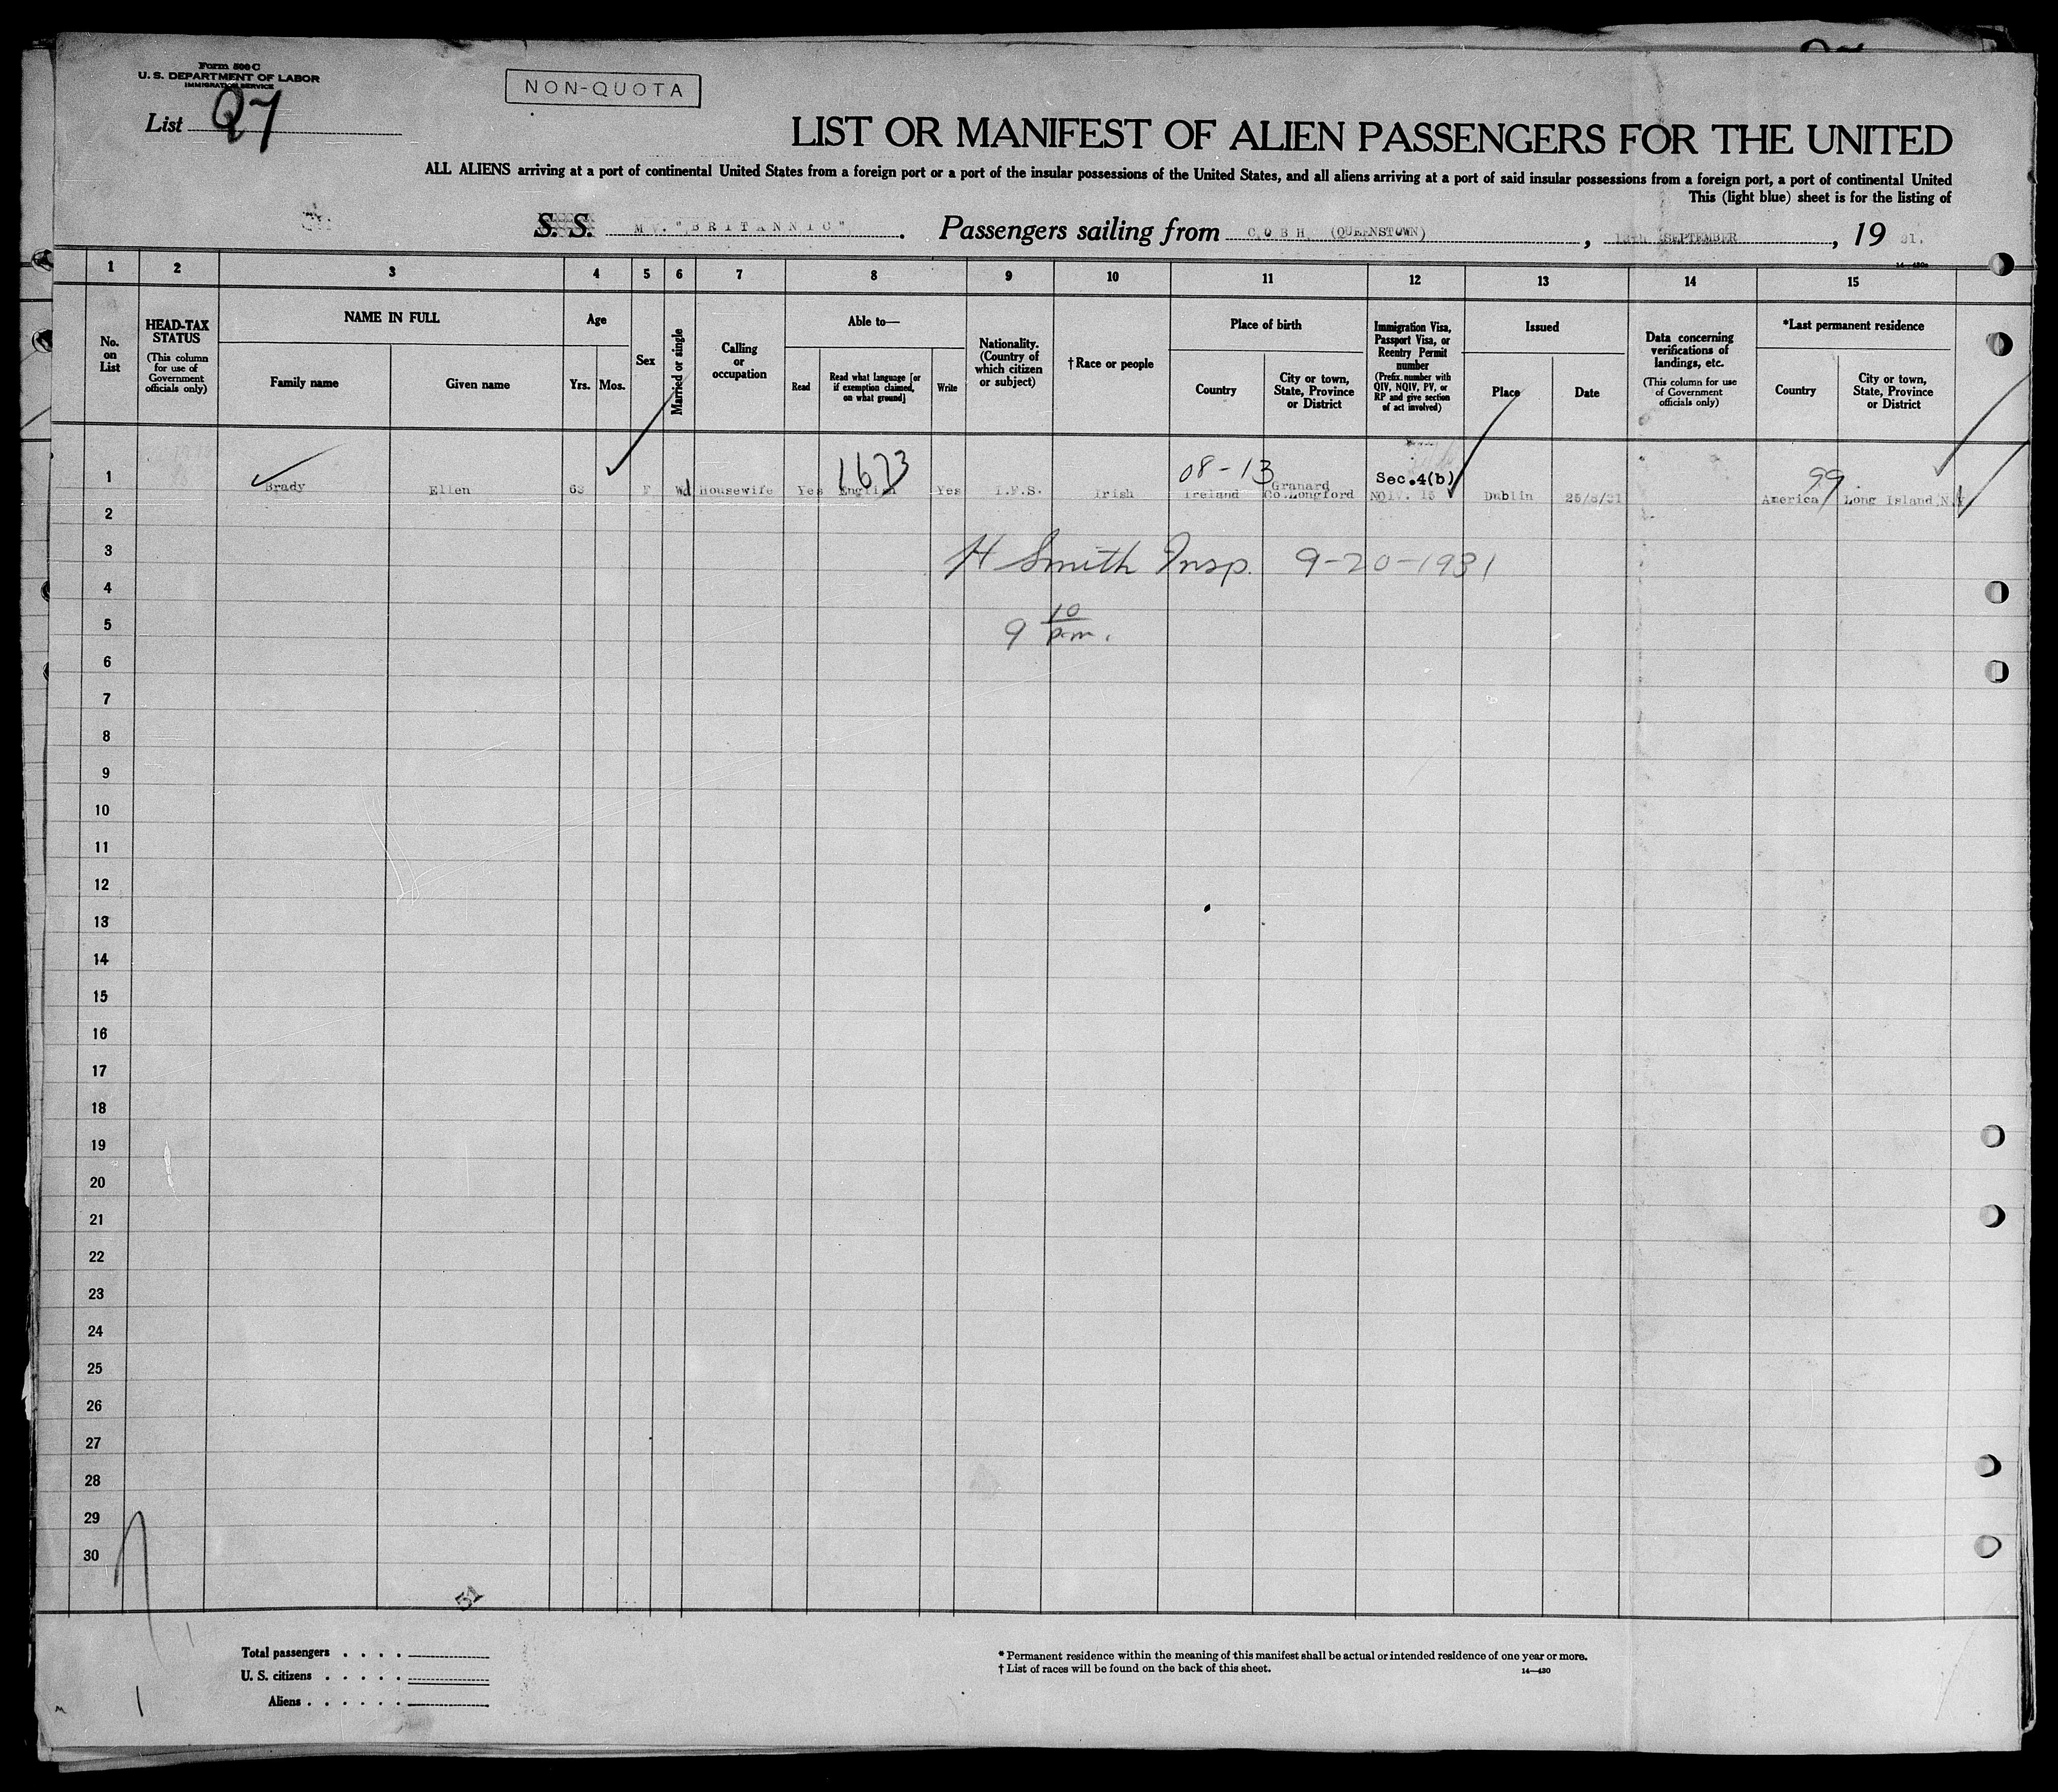 Form 500 C
U. S. DEPARTMENT OF LABOR
IMMIGRATION SERVICE
List 27
NON-QUOTA
LIST OR MANIFEST OF ALIEN PASSENGERS FOR THE UNITED
ALL ALIENS arriving at a port of continental United States from a foreign port or a port of the insular possessions of the United States, and all aliens arriving at a port of said insular possessions from a foreign port, a port of continental United
This (light blue) sheet is for the listing of
S. S. MV. "BRITANNIC". Passengers sailing from COBH (QUEENSTOWN), SEPTEMBER, 19 31.
1 2 3 4 5 6 7 8 9 10 11 12 13 14 15
No. on List
HEAD-TAX STATUS
(This column for use of Government officials only)
NAME IN FULL
Family name
Given name
Age
Yrs.
Mos.
Sex
Married or single
Calling or occupation
Able to—
Read
Read what language [or if exemption claimed, on what ground]
Write
Nationality. (Country of which citizen or subject)
† Race or people
Place of birth
Country
City or town, State, Province or District
Immigration Visa, Passport Visa, or Reentry Permit number
(Prefix number with QIV, NQIV, PV, or RP and give section of act involved)
Issued
Place
Date
Data concerning verifications of landings, etc.
(This column for use of Government officials only)
*Last permanent residence
Country
City or town, State, Province or District
1673
08-13
Sec.4(b)
99
1 Brady Ellen 63 F Wd Housewife Yes English Yes I.F.S. Irish Ireland Granard Co.Longford NQIV. 15 Dublin 25/8/31 America Long Island N.Y
2
3 H Smith Insp. 9-20-1931
4
5 9 10 p.m.
6
7
8
9
10
11
12
13
14
15
16
17
18
19
20
21
22
23
24
25
26
27
28
29
30
Total passengers
U. S. citizens
Aliens
* Permanent residence within the meaning of this manifest shall be actual or intended residence of one year or more.
† List of races will be found on the back of this sheet.
14—430